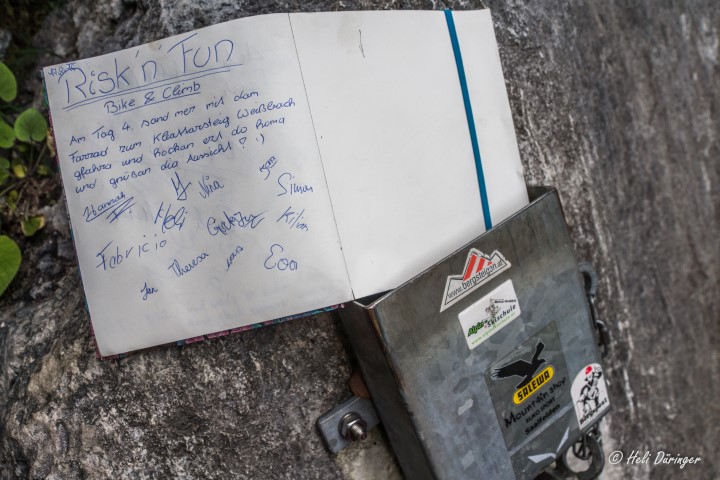 Risk 'n' Fun
Bike & Climb
Am Tag 4 sand mer mit dem
Farrad zum Klettersteig Weißbach
gfahrd und hockan erl do
und grüßen die Aussicht ? :)
Hannah Nina Simon
Heli Kilian
Fabricio
Jan Theresa Eva
www.bergsteigen.at
Alpin
Skischule
SALEWA
Mountain shop
Saalfelden
© Heli Düringer